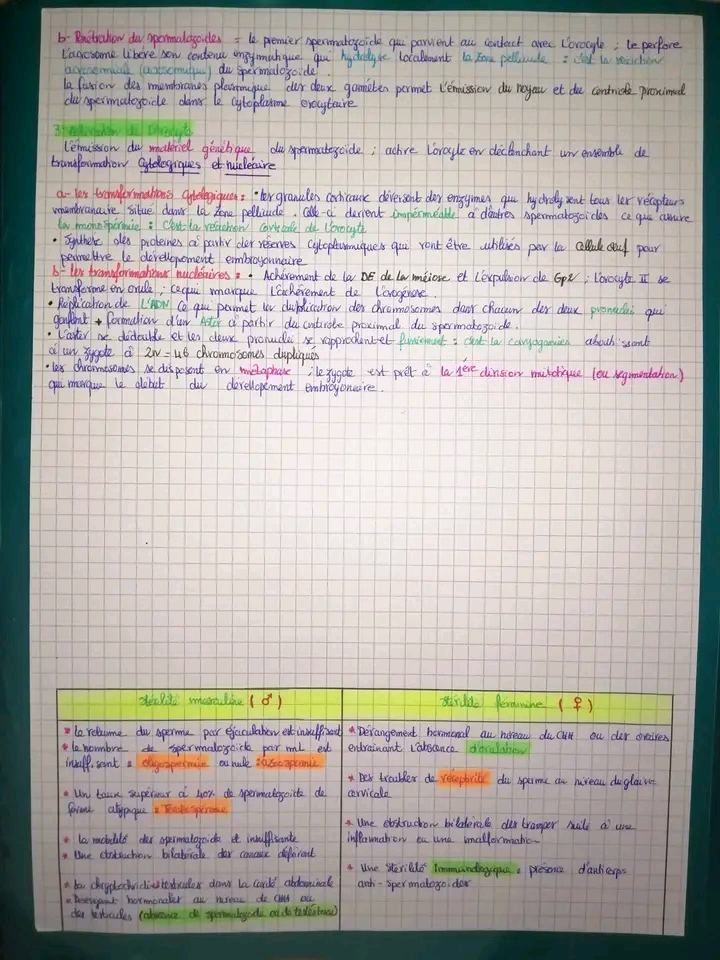 b- Pénétration du spermatozoïdes = le premier spermatozoïde qui parvient au contact avec l'ovocyte ; le perfore
L'acrosome libère son contenu enzymatique qui hydrolyse localement la zone pellucide : c'est la réaction
acrosomiale (acrosomique) du spermatozoïde.
la fusion des membranes plasmique des deux gamètes permet l'émission du noyau et du centriole proximal
du spermatozoïde dans le cytoplasme ovocytaire
3- de l'ovocyte
L'émission du matériel génétique du spermatozoïde ; active l'ovocyte en déclenchant un ensemble de
transformation cytologiques et nucléaire.
a- les transformations cytologiques : • les granules corticaux déversent des enzymes qui hydrolysent tous les récepteurs
membranaire situé dans la zone pellucide. Celle-ci devient imperméable à d'autres spermatozoïdes ce que assure
la monospermie : C'est la réaction corticale de l'ovocyte
• Synthèse des protéines à partir des réserves cytoplasmiques qui vont être utilisés par la cellule œuf pour
permettre le développement embryonnaire
b- les transformations nucléaires : • Achèvement de la DE de la méiose et l'expulsion de Gp2 ; l'ovocyte II se
transforme en ovule ; ce qui marque l'achèvement de l'ovogénèse.
• Réplication de l'ADN ce qui permet la duplication des chromosomes dans chacun des deux pronucléi qui
gonflent + formation d'un Aster à partir du centriole proximal du spermatozoïde.
• L'aster se dédouble et les deux pronucléi se rapprochent et fusionnent : c'est la caryogamie aboutissant
à un zygote à 2n = 46 chromosomes dupliqués
• les chromosomes se disposent en métaphase ; le zygote est prêt à la 1ère division mitotique (ou segmentation)
qui marque le début du développement embryonnaire.
Stérilité masculine (♂)
* le volume du sperme par éjaculation est insuffisant
* le nombre de spermatozoïde par mL est
insuffisant : oligospermie ou nule : azoospermie
* Un taux supérieur à 40% de spermatozoïde de
forme atypique : Tératospermie
* la mobilité des spermatozoïde et insuffisante
* Une obstruction bilatérale des canaux déférent
* La chryptochridie testicules dans la cavité abdominale
* hormonales au niveau de CHH ou
des testicules (absence de spermatozoïde ou de testostérone)
Stérilité féminine (♀)
* Dérangement hormonal au niveau du CHH ou des ovaires
entraînant l'absence d'ovulation
* Des troubles de réceptivité du sperme au niveau du glaire
cervicale
* Une obstruction bilatérale des trompes suite à une
inflammation ou une malformation
* Une stérilité immunologique : présence d'anticorps
anti-spermatozoïdes